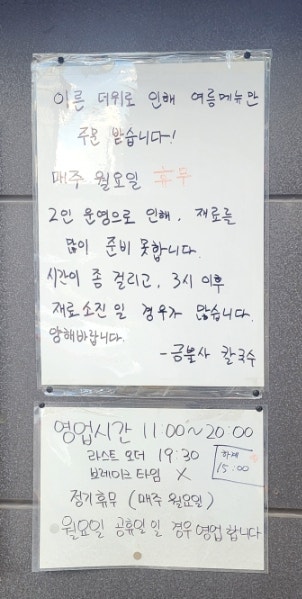 이른 더위로 인해 여름메뉴만
주문 받습니다!
매주 월요일 휴무
2인 운영으로 인해, 재료를
많이 준비 못합니다.
시간이 좀 걸리고, 3시 이후
재료소진 일 경우가 많습니다.
양해바랍니다.
- 금불사 칼국수
영업시간 11:00~20:00
라스트 오더 19:30
브레이크 타임 X
하계
15:00
정기휴무 (매주 월요일)
월요일 공휴일 일 경우 영업 합니다